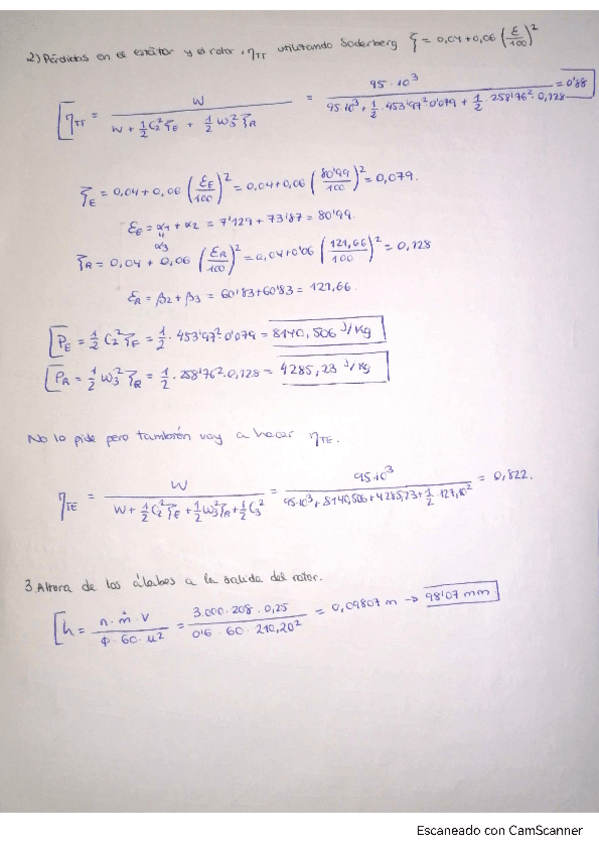 2) Pérdidas en el estátor y el rotor, ηTT utilizando Soderberg ξ = 0,04 + 0,06 (ε/100)²
ηTT = W / (W + 1/2 C2² ξE + 1/2 W3² ξR) = 95·10³ / (95·10³ + 1/2 · 453'97² 0'079 + 1/2 · 258'76² · 0,128) = 0'88
ξE = 0,04 + 0,06 (εE/100)² = 0,04 + 0,06 (80'99/100)² = 0,079.
εE = α1 + α2 = 7'129 + 73'87 = 80'99.
"
α3
ξR = 0,04 + 0,06 (εR/100)² = 0,04 + 0'06 (121,66/100)² = 0,128
εR = β2 + β3 = 60'83 + 60'83 = 121,66.
PE = 1/2 C2² ξE = 1/2 · 453'97² · 0'079 = 8140,506 J/kg
PR = 1/2 W3² ξR = 1/2 · 258'76² · 0,128 = 4285,23 J/kg
No lo pide pero también voy a hacer ηTE.
ηTE = W / (W + 1/2 C2² ξE + 1/2 W3² ξR + 1/2 C3²) = 95·10³ / (95·10³ + 8140,506 + 4285,23 + 1/2 · 127,10²) = 0,822.
3. Altura de los álabes a la salida del rotor.
h = n · ṁ · V / (Φ · 60 · u²) = 3.000 · 208 · 0,25 / (0'6 · 60 · 210,20²) = 0,09807 m → 98'07 mm
Escaneado con CamScanner